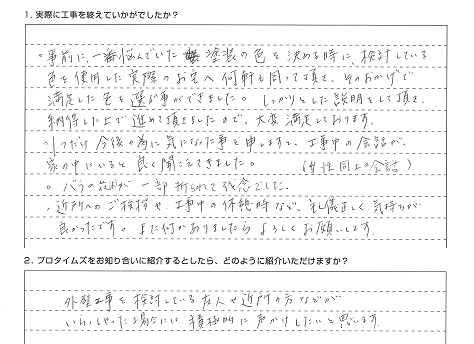 1. 実際に工事を終えていかがでしたか？
。事前に、一番悩んでいた 塗装の色を決める時に、検討している
色を使用した実際のお宅へ何軒も回って頂き、そのおかげで
満足した色を選ぶ事ができました。しっかりとした説明をして頂き
納得した上で進めて頂きましたので、大変満足しております。
。1つだけ今後の為に気になった事を申しますと、工事中の会話が、
家の中にいると良く聞こえてきました。（男性同士の会話）
。バラの 一部折られて残念でした。
。近所へのご挨拶や、工事中の休憩時など、礼儀正しく気持ちが
良かったです。また何かありましたらよろしくお願いします。
2. プロタイムズをお知り合いに紹介するとしたら、どのように紹介いただけますか？
外壁工事を検討している友人や近所の方などが
いらっしゃった場合には積極的に声かけしたいと思います。